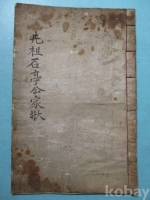 先祖石亭公家狀
kobay